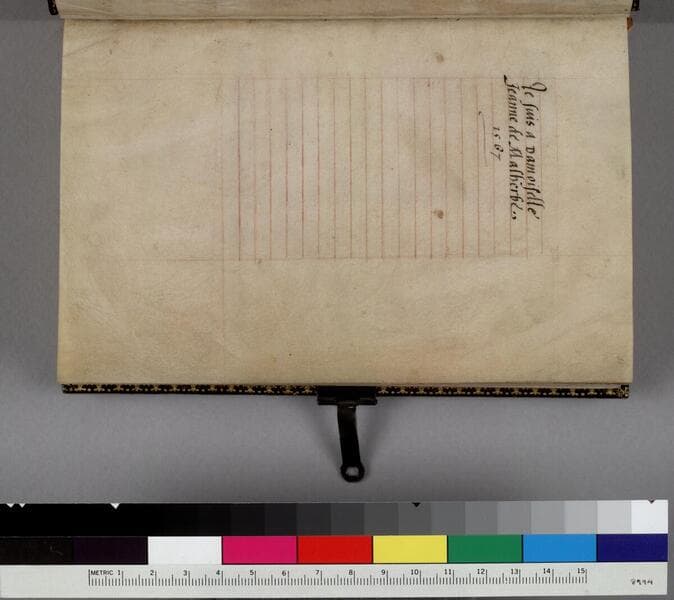 Je suis A Damoiselle
Jeanne de Malherbe
1567
METRIC 1 2 3 4 5 6 7 8 9 10 11 12 13 14 15